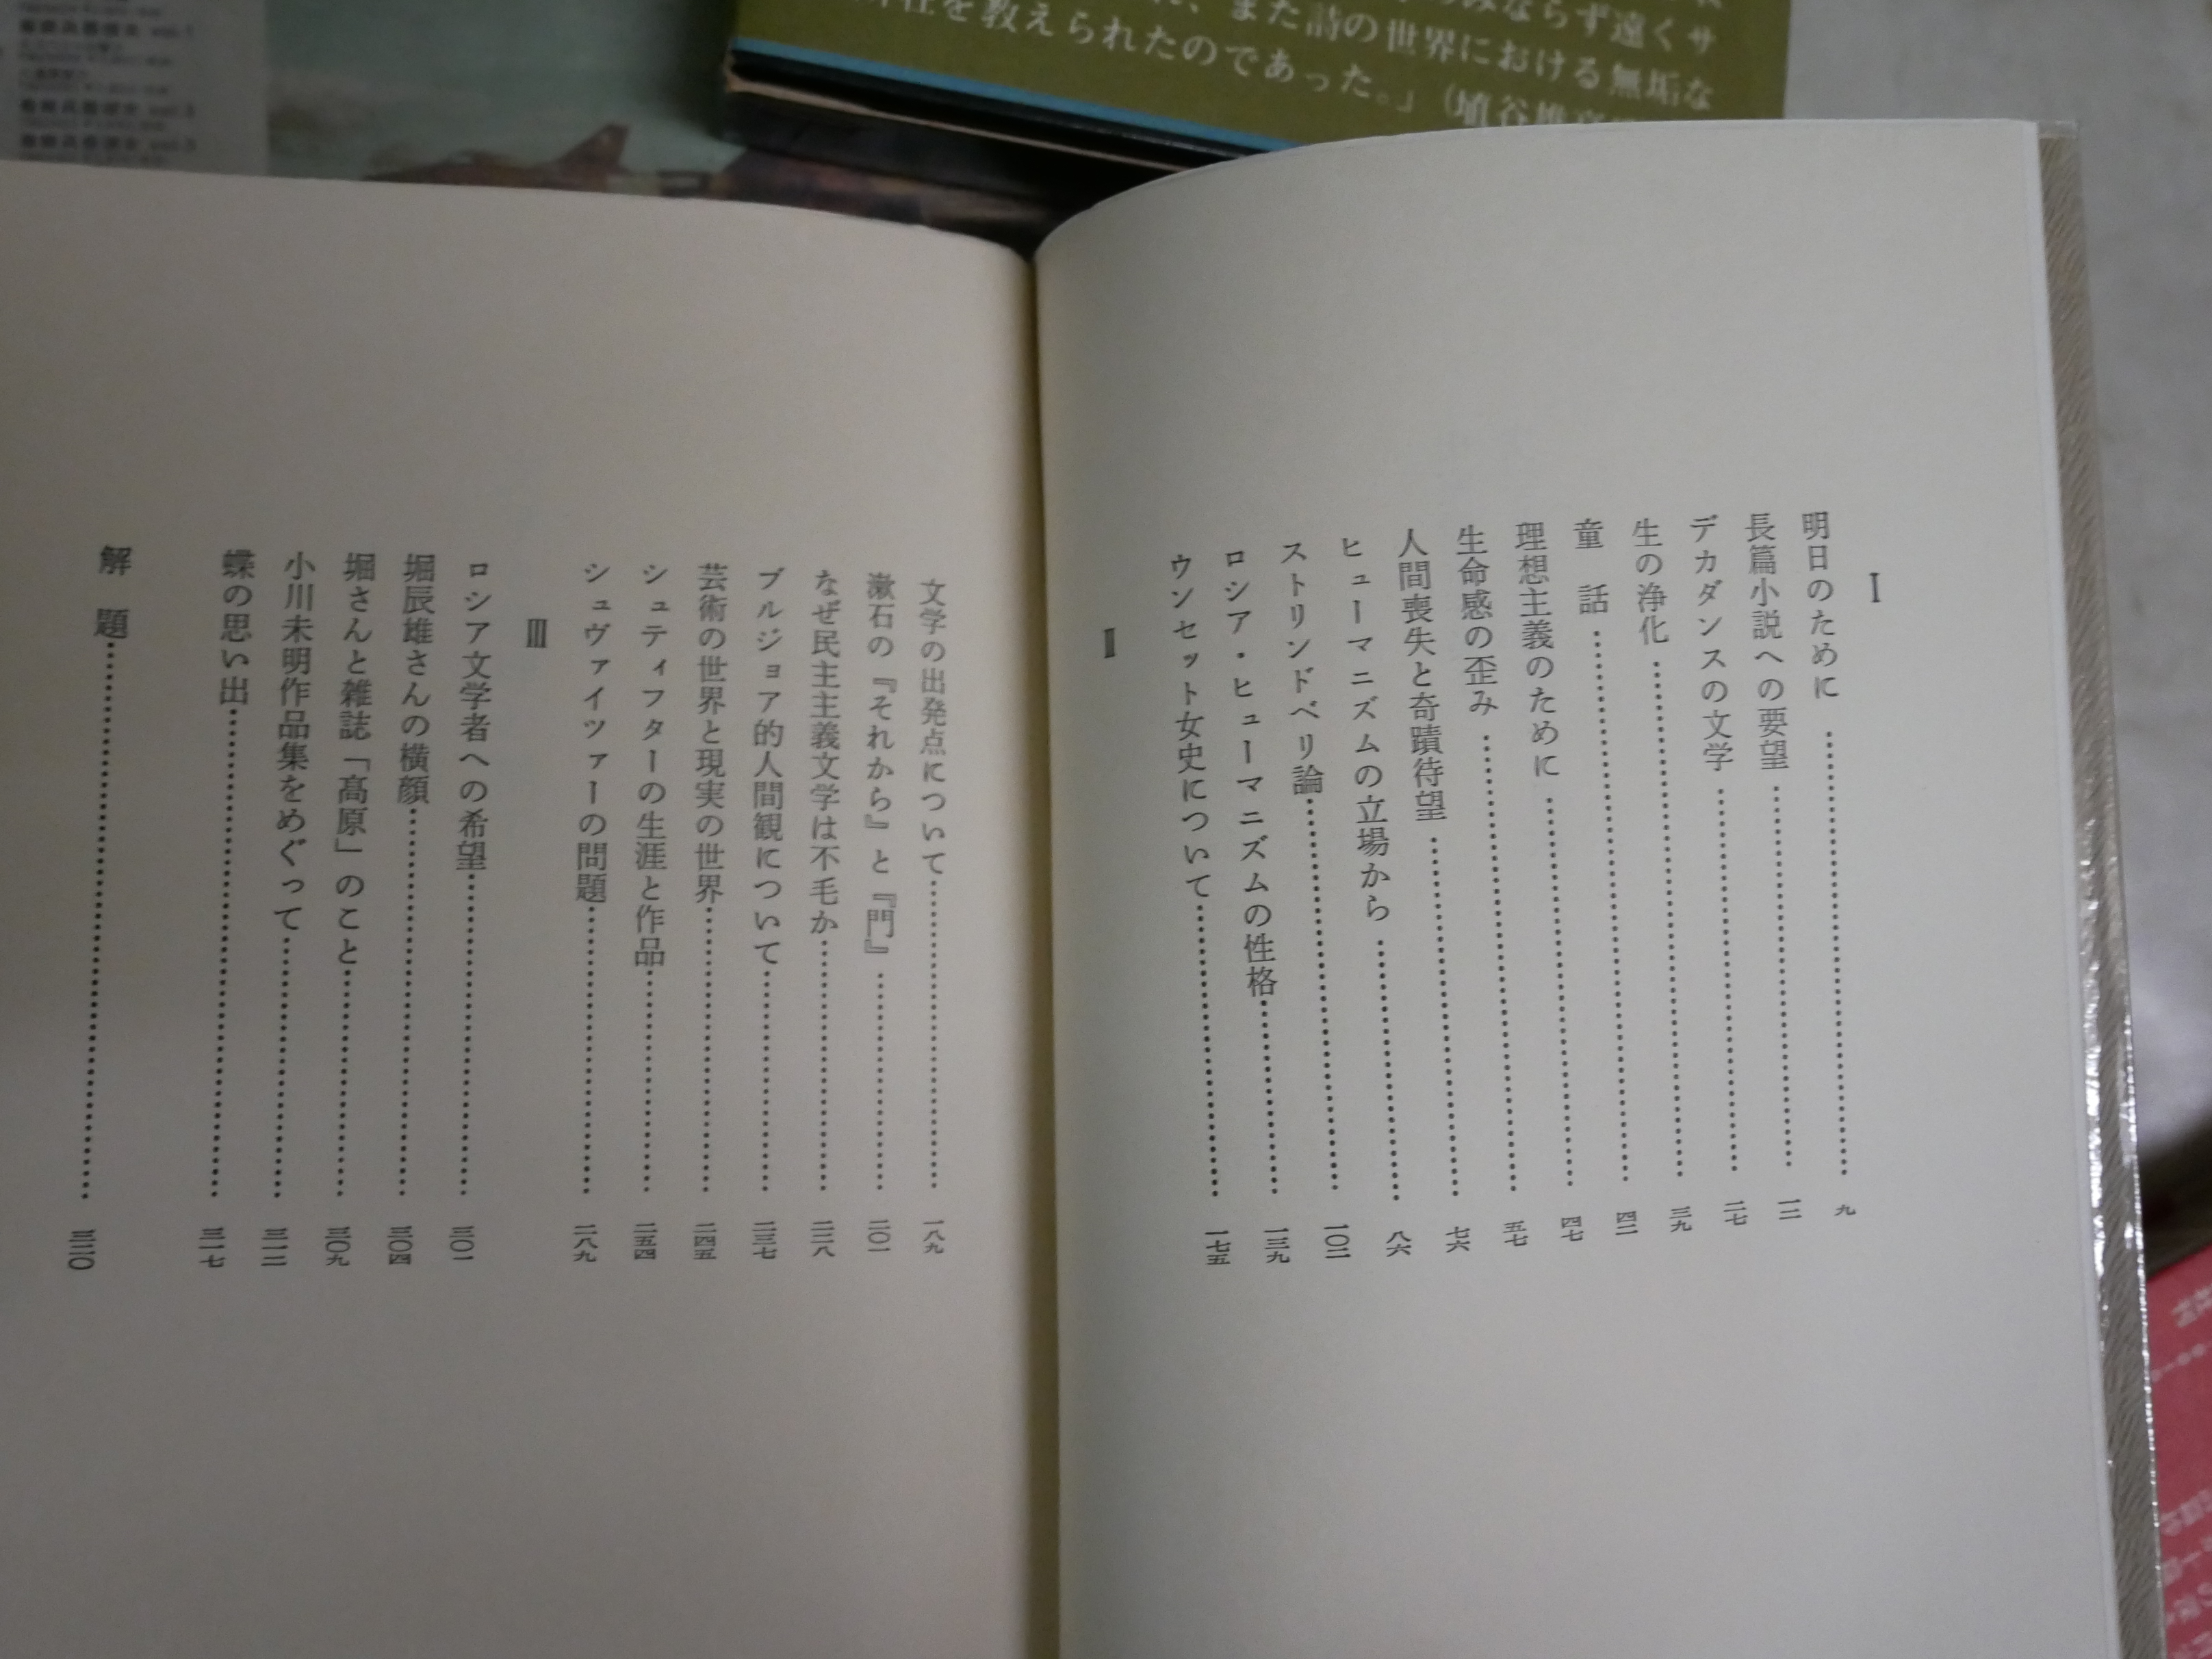 Ⅰ
明日のために……九
長篇小説への要望……一一
デカダンスの文学……二七
生の浄化……三九
童話……四二
理想主義のために……四七
生命感の歪み……五七
人間喪失と奇蹟待望……七六
ヒューマニズムの立場から……八六
ストリンドベリ論……一〇二
ロシア・ヒューマニズムの性格……一三九
ウンセット女史について……一七五
Ⅱ
文学の出発点について……一八九
漱石の『それから』と『門』……二〇一
なぜ民主主義文学は不毛か……二二八
ブルジョア的人間観について……二三七
芸術の世界と現実の世界……二四五
シュティフターの生涯と作品……二五四
シュヴァイツァーの問題……二八九
Ⅲ
ロシア文学者への希望……三〇一
堀辰雄さんの横顔……三〇四
堀さんと雑誌「高原」のこと……三〇九
小川未明作品集をめぐって……三一二
蝶の思い出……三一七
解題……三二〇
みならず遠くサ
、また詩の世界における無垢な
を教えられたのであった。」(埴谷雄高